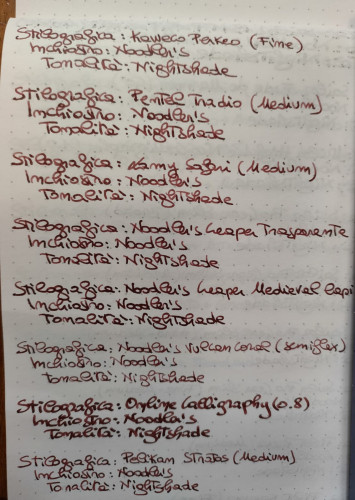 Stilografica: Kaweco Perkeo (Fine)
Inchiostro: Noodler's
Tonalità: Nightshade
Stilografica: Pentel Tradio (Medium)
Inchiostro: Noodler's
Tonalità: Nightshade
Stilografica: Lamy Safari (Medium)
Inchiostro: Noodler's
Tonalità: Nightshade
Stilografica: Noodler's Creaper Trasparente
Inchiostro: Noodler's
Tonalità: Nightshade
Stilografica: Noodler's Creaper Medieval Lapi
Inchiostro: Noodler's
Tonalità: Nightshade
Stilografica: Noodler's Vulcan Coral (semiflex)
Inchiostro: Noodler's
Tonalità: Nightshade
Stilografica: Online Calligraphy (0.8)
Inchiostro: Noodler's
Tonalità: Nightshade
Stilografica: Pelikan Stratos (Medium)
Inchiostro: Noodler's
Tonalità: Nightshade